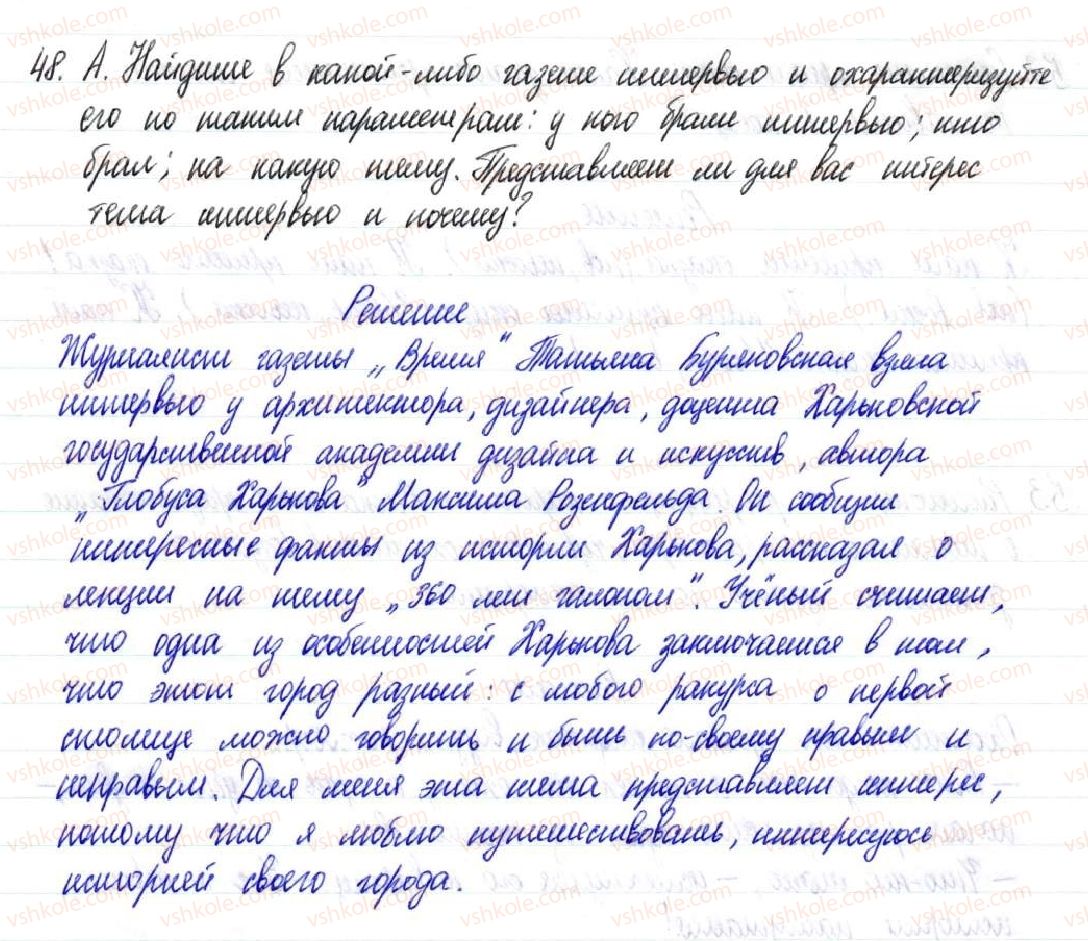 48. А. Найдите в какой-либо газете интервью и охарактеризуйте
его по таким параметрам: у кого брали интервью; кто
брал; на какую тему. Представляет ли для вас интерес
тема интервью и почему?
Решение
Журналист газеты „Время" Татьяна Буряковская взяла
интервью у архитектора, дизайнера, доцента Харьковской
государственной академии дизайна и искусств, автора
„Глобуса Харькова" Максима Розенфельда. Он сообщил
интересные факты из истории Харькова, рассказал о
лекции на тему „360 лет галопом". Учёный считает,
что одна из особенностей Харькова заключается в том,
что этот город разный: с любого ракурса о первой
столице можно говорить и быть по-своему правым и
неправым. Для меня эта тема представляет интерес,
потому что я люблю путешествовать, интересуюсь
историей своего города.